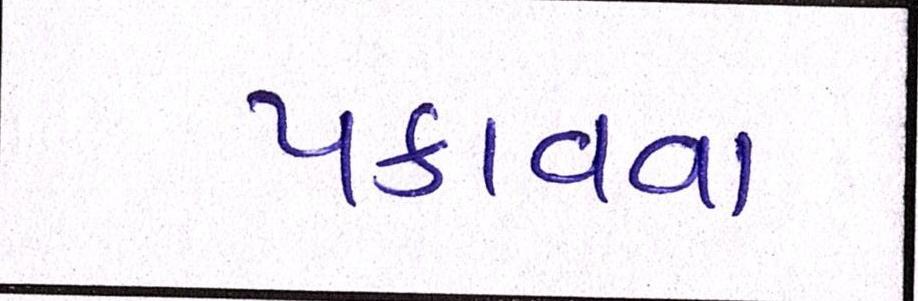 પકાવવા